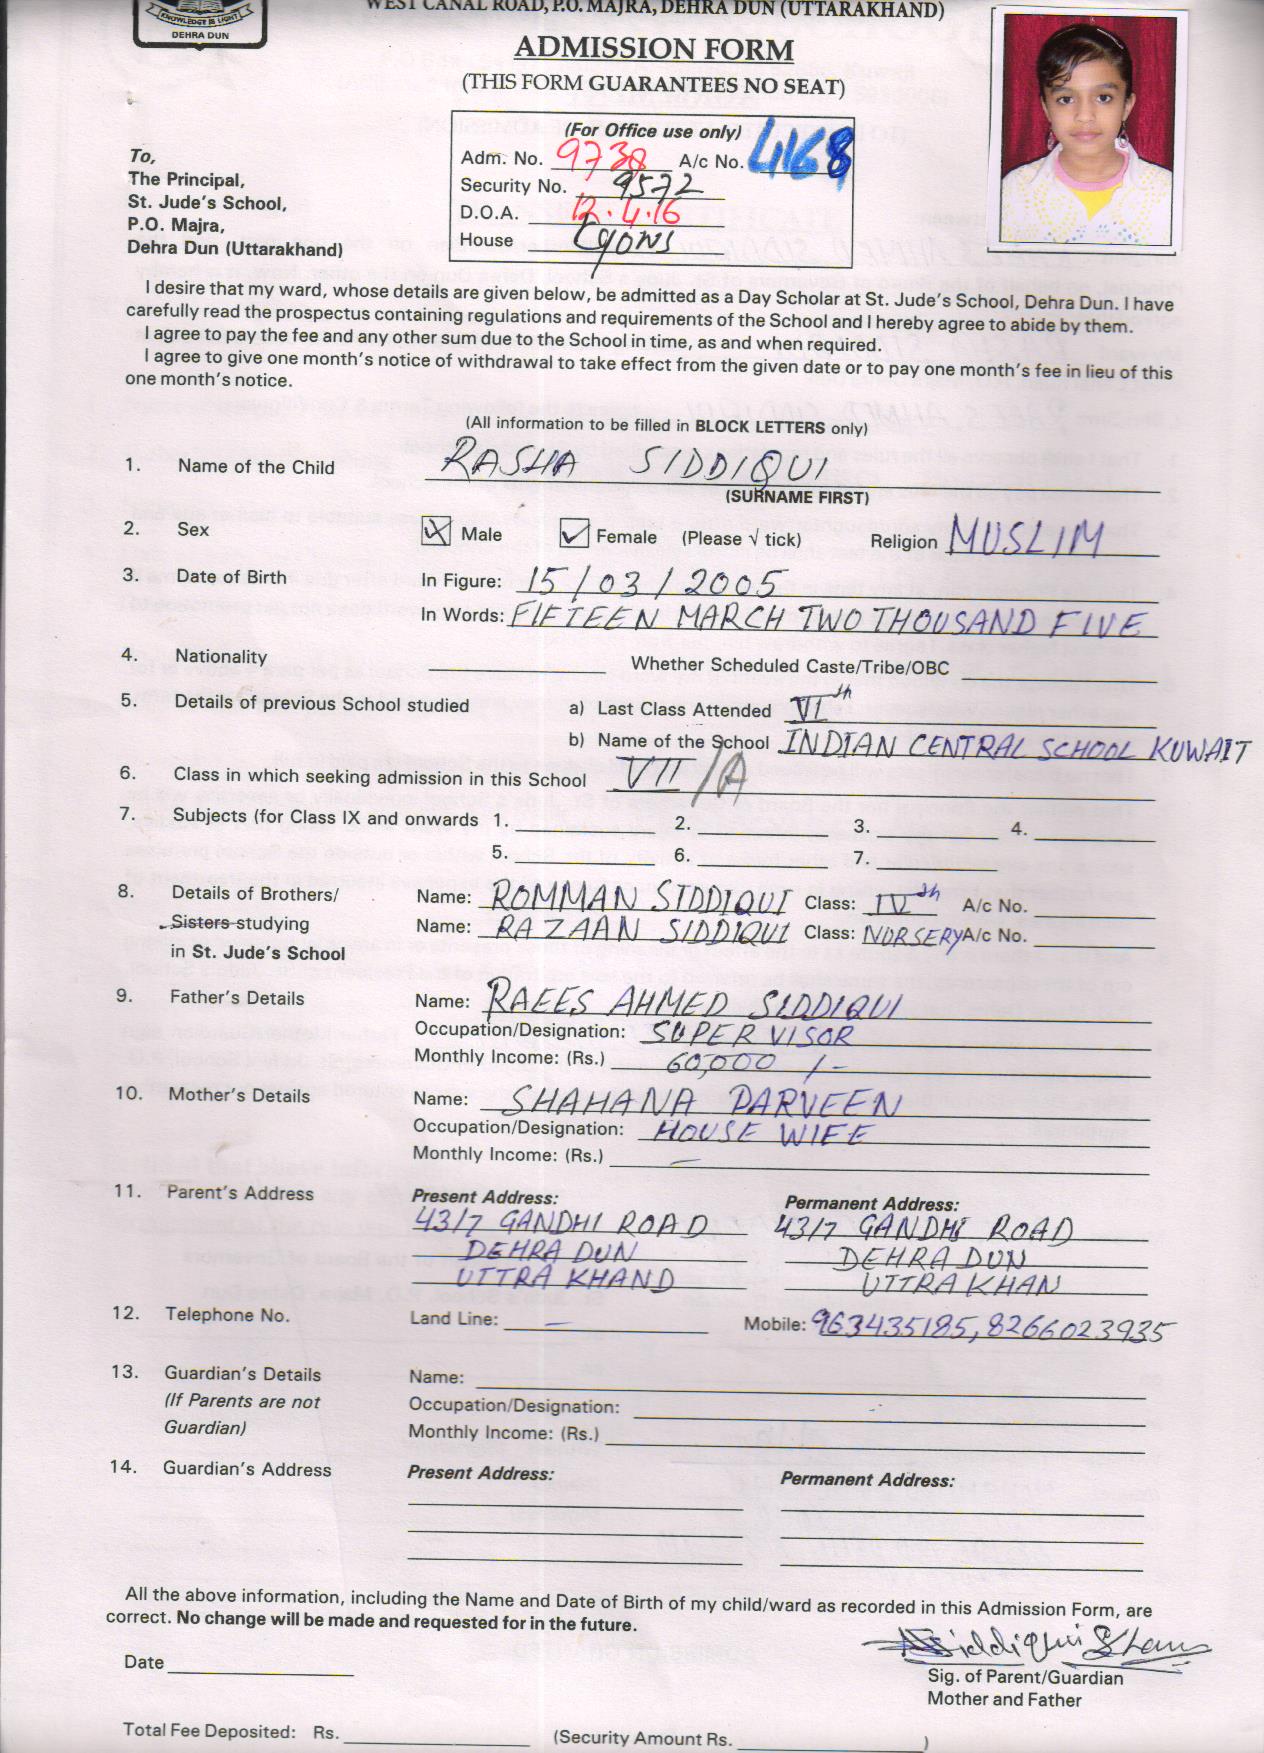 KNOWLEDGE IS LIGHT
DEHRA DUN
WEST CANAL ROAD, P.O. MAJRA, DEHRA DUN (UTTARAKHAND)
ADMISSION FORM
(THIS FORM GUARANTEES NO SEAT)
(For Office use only)
Adm. No. 9738 A/c No. 4168
Security No. 9572
D.O.A. 12.4.16
House Lyons
To,
The Principal,
St. Jude's School,
P.O. Majra,
Dehra Dun (Uttarakhand)
I desire that my ward, whose details are given below, be admitted as a Day Scholar at St. Jude's School, Dehra Dun. I have
carefully read the prospectus containing regulations and requirements of the School and I hereby agree to abide by them.
I agree to pay the fee and any other sum due to the School in time, as and when required.
I agree to give one month's notice of withdrawal to take effect from the given date or to pay one month's fee in lieu of this
one month's notice.
(All information to be filled in BLOCK LETTERS only)
1. Name of the Child RASHA SIDDIQUI
(SURNAME FIRST)
2. Sex Male Female (Please √ tick) Religion MUSLIM
3. Date of Birth In Figure: 15/03/2005
In Words: FIFTEEN MARCH TWO THOUSAND FIVE
4. Nationality Whether Scheduled Caste/Tribe/OBC
5. Details of previous School studied a) Last Class Attended VIth
b) Name of the School INDIAN CENTRAL SCHOOL KUWAIT
6. Class in which seeking admission in this School VII/A
7. Subjects (for Class IX and onwards 1. 2. 3. 4.
5. 6. 7.
8. Details of Brothers/ Name: ROMMAN SIDDIQUI Class: IVth A/c No.
Sisters studying Name: RAZAAN SIDDIQUI Class: NURSERY A/c No.
in St. Jude's School
9. Father's Details Name: RAEES AHMED SIDDIQUI
Occupation/Designation: SUPERVISOR
Monthly Income: (Rs.) 60,000/-
10. Mother's Details Name: SHAHANA PARVEEN
Occupation/Designation: HOUSE WIFE
Monthly Income: (Rs.) —
11. Parent's Address Present Address: Permanent Address:
43/7 GANDHI ROAD 43/7 GANDHI ROAD
DEHRA DUN DEHRA DUN
UTTRA KHAND UTTRA KHAN
12. Telephone No. Land Line: — Mobile: 963435185, 8266023935
13. Guardian's Details Name:
(If Parents are not Occupation/Designation:
Guardian) Monthly Income: (Rs.)
14. Guardian's Address Present Address: Permanent Address:
All the above information, including the Name and Date of Birth of my child/ward as recorded in this Admission Form, are
correct. No change will be made and requested for in the future.
Siddiqui
Date
Sig. of Parent/Guardian
Mother and Father
Total Fee Deposited: Rs. (Security Amount Rs. )